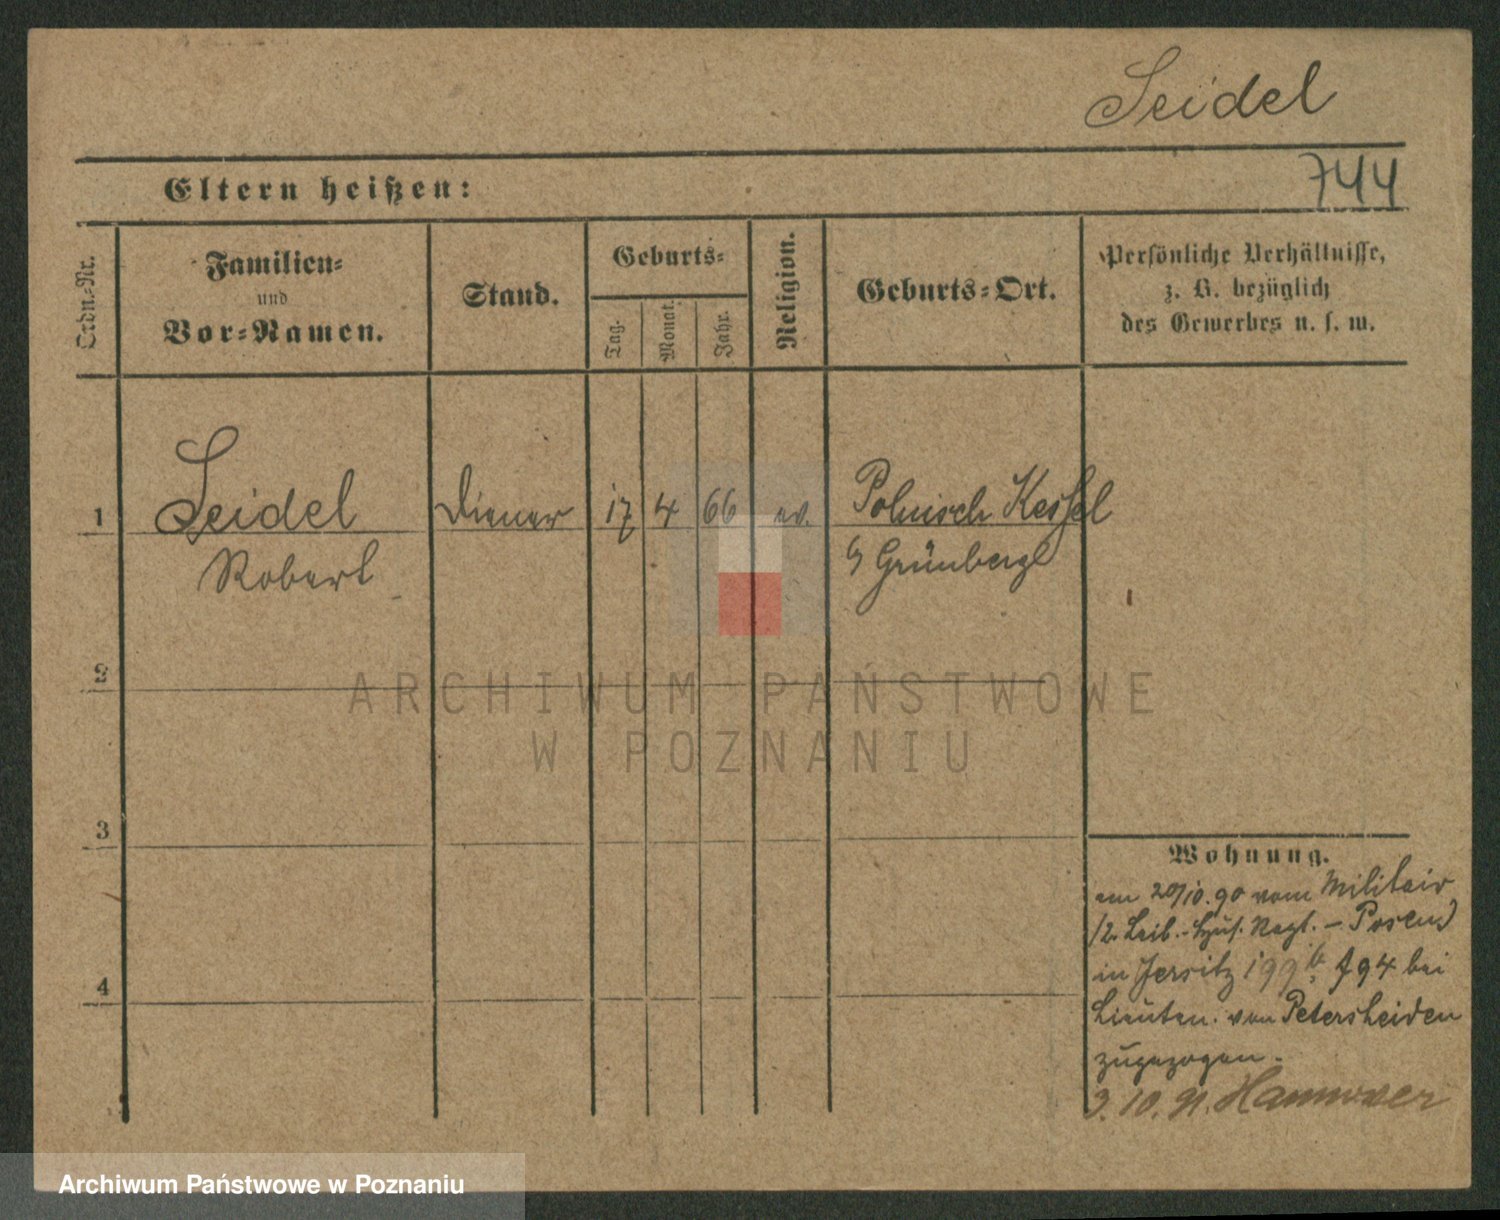 Seidel
Eltern heißen:
744
Ordn.-Nr.
Familien-
und
Vor-Namen.
Stand.
Geburts-
Tag.
Monat.
Jahr.
Religion.
Geburts-Ort.
Persönliche Verhältnisse,
z. B. bezüglich
des Gewerbes u. s. w.
1 Seidel Diener 17 4 66 ev. Polnisch Kessel
Robert Grünberg
2
ARCHIWUM PAŃSTWOWE
W POZNANIU
3
4
Wohnung.
am 20/10.90 vom Militair
(2. Leib.-Hus. Regt. - Posen)
in Jersitz 199 94 bei
Lieuten. von Petersheiden
zugezogen.
3.10.91. Hannover
Archiwum Państwowe w Poznaniu